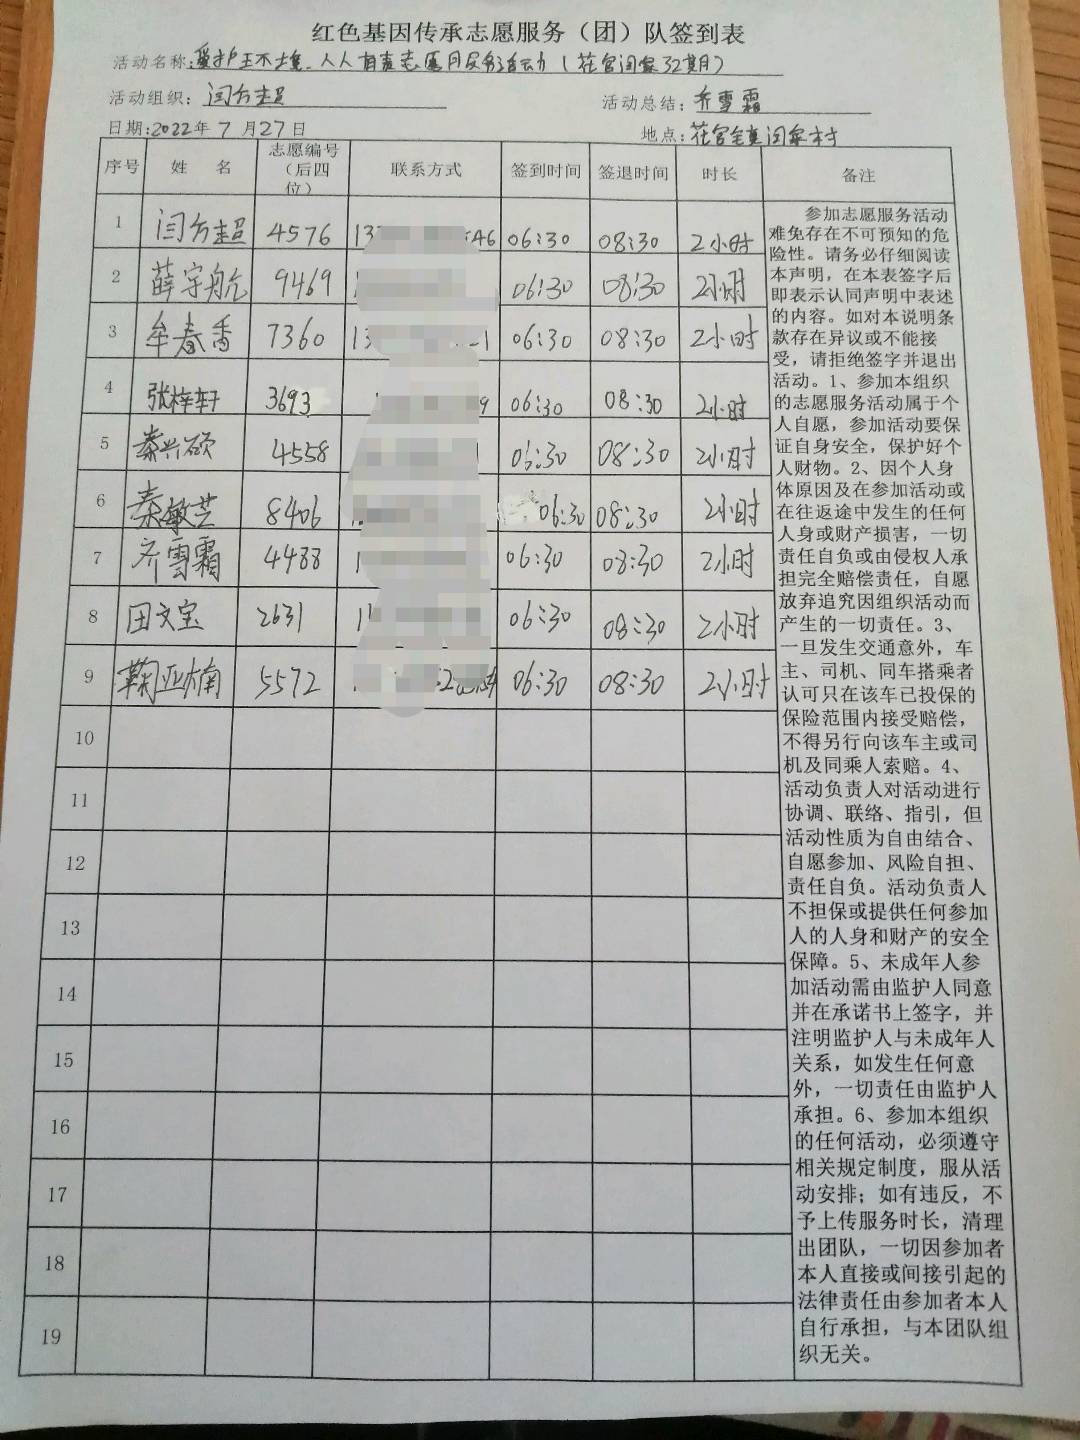 红色基因传承志愿服务（团）队签到表
活动名称:爱护环境、人人有责志愿服务活动（花官闫家32期）
活动组织：闫方超 活动总结：齐雪霜
日期:2022年7月27日 地点:花官镇闫家村
序号 姓 名 志愿编号（后四位） 联系方式 签到时间 签退时间 时长 备注
1 闫方超 4576 06:30 08:30 2小时
2 薛宇航 9469 06:30 08:30 2小时
3 牟春香 7360 06:30 08:30 2小时
4 张梓轩 3693 06:30 08:30 2小时
5 秦兴硕 4558 06:30 08:30 2小时
6 秦敏芝 8406 06:30 08:30 2小时
7 齐雪霜 4488 06:30 08:30 2小时
8 田文宝 2631 06:30 08:30 2小时
9 鞠亚楠 5572 06:30 08:30 2小时
10
11
12
13
14
15
16
17
18
19
参加志愿服务活动
难免存在不可预知的危
险性。请务必仔细阅读
本声明，在本表签字后
即表示认同声明中表述
的内容。如对本说明条
款存在异议或不能接
受，请拒绝签字并退出
活动。1、参加本组织
的志愿服务活动属于个
人自愿，参加活动要保
证自身安全，保护好个
人财物。2、因个人身
体原因及在参加活动或
在往返途中发生的任何
人身或财产损害，一切
责任自负或由侵权人承
担完全赔偿责任，自愿
放弃追究因组织活动而
产生的一切责任。3、
一旦发生交通意外，车
主、司机、同车搭乘者
认可只在该车已投保的
保险范围内接受赔偿，
不得另行向该车主或司
机及同乘人索赔。4、
活动负责人对活动进行
协调、联络、指引，但
活动性质为自由结合、
自愿参加、风险自担、
责任自负。活动负责人
不担保或提供任何参加
人的人身和财产的安全
保障。5、未成年人参
加活动需由监护人同意
并在承诺书上签字，并
注明监护人与未成年人
关系，如发生任何意
外，一切责任由监护人
承担。6、参加本组织
的任何活动，必须遵守
相关规定制度，服从活
动安排；如有违反，不
予上传服务时长，清理
出团队，一切因参加者
本人直接或间接引起的
法律责任由参加者本人
自行承担，与本团队组
织无关。